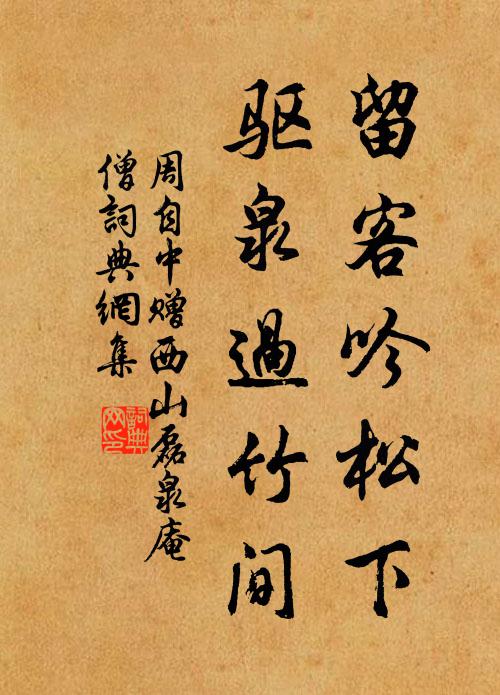 留客吟松下
驱泉過竹间
周自中贈西山磊泉庵
僧詞典網集
詞典
网印